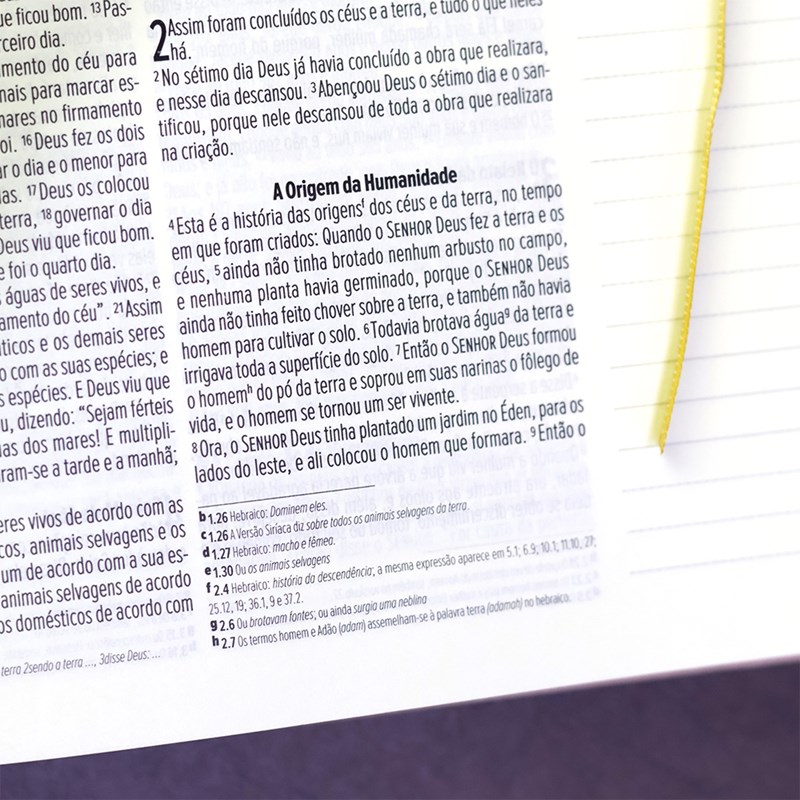 ue ficou bom. 13 Pas-
rceiro dia.
mento do céu para
nais para marcar es-
nares no firmamento
oi. 16 Deus fez os dois
ar o dia e o menor para
as. 17 Deus os colocou
terra, 18 governar o dia
Deus viu que ficou bom.
e foi o quarto dia.
águas de seres vivos, e
amento do céu”. 21 Assim
ticos e os demais seres
o com as suas espécies; e
s espécies. E Deus viu que
u, dizendo: “Sejam férteis
as dos mares! E multipli-
ram-se a tarde e a manhã;
eres vivos de acordo com as
cos, animais selvagens e os
um de acordo com a sua es-
animais selvagens de acordo
os domésticos de acordo com
terra 2sendo a terra ..., 3disse Deus: ...
2 Assim foram concluídos os céus e a terra, e tudo o que neles
há.
2 No sétimo dia Deus já havia concluído a obra que realizara,
e nesse dia descansou. 3 Abençoou Deus o sétimo dia e o san-
tificou, porque nele descansou de toda a obra que realizara
na criação.
A Origem da Humanidade
4 Esta é a história das origens f dos céus e da terra, no tempo
em que foram criados: Quando o SENHOR Deus fez a terra e os
céus, 5 ainda não tinha brotado nenhum arbusto no campo,
e nenhuma planta havia germinado, porque o SENHOR Deus
ainda não tinha feito chover sobre a terra, e também não havia
homem para cultivar o solo. 6 Todavia brotava água g da terra e
irrigava toda a superfície do solo. 7 Então o SENHOR Deus formou
o homem h do pó da terra e soprou em suas narinas o fôlego de
vida, e o homem se tornou um ser vivente.
8 Ora, o SENHOR Deus tinha plantado um jardim no Éden, para os
lados do leste, e ali colocou o homem que formara. 9 Então o
b 1.26 Hebraico: Dominem eles.
c 1.26 A Versão Siríaca diz sobre todos os animais selvagens da terra.
d 1.27 Hebraico: macho e fêmea.
e 1.30 Ou os animais selvagens
f 2.4 Hebraico: história da descendência; a mesma expressão aparece em 5.1; 6.9; 10.1; 11.10, 27;
25.12, 19; 36.1, 9 e 37.2.
g 2.6 Ou brotavam fontes; ou ainda surgia uma neblina
h 2.7 Os termos homem e Adão (adam) assemelham-se à palavra terra (adamah) no hebraico.